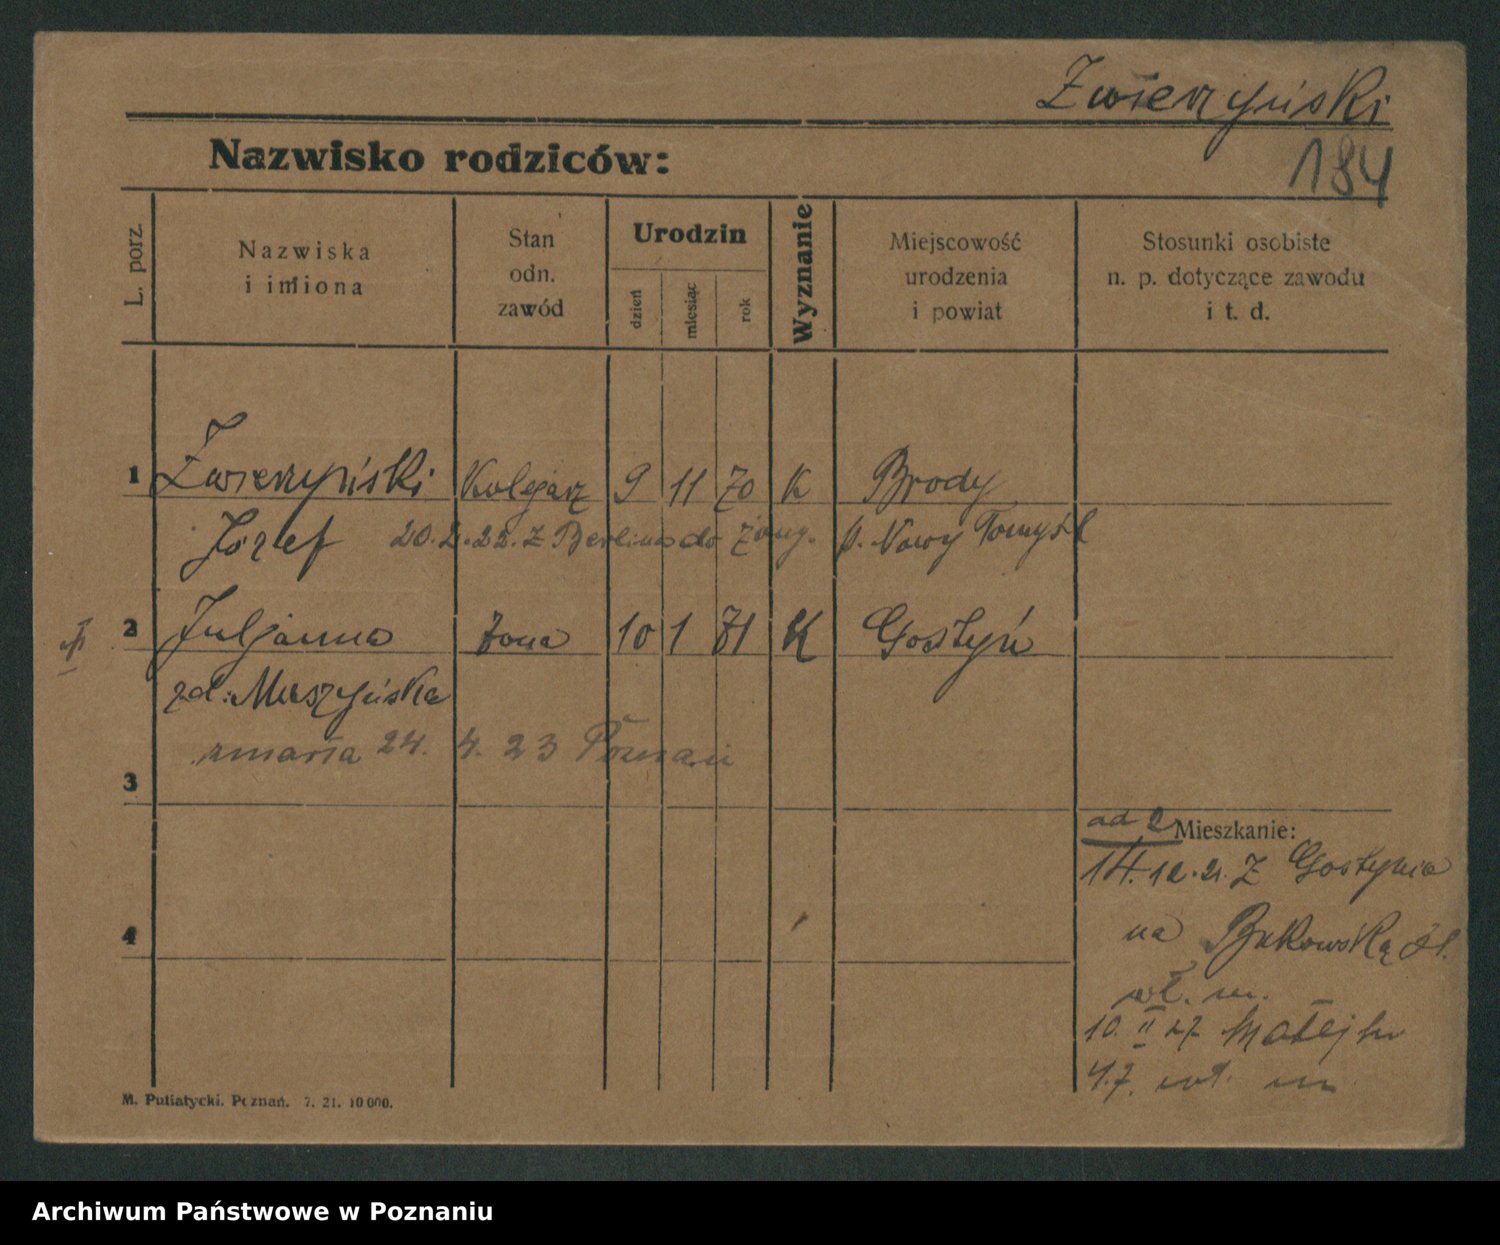 Zwierzyński
184
Nazwisko rodziców:
L. porz.
Nazwiska i imiona
Stan odn. zawód
Urodzin
dzień
miesiąc
rok
Wyznanie
Miejscowość urodzenia i powiat
Stosunki osobiste n. p. dotyczące zawodu i t. d.
1 Zwierzyński Kolejarz 9 11 70 K Brody
Józef 20.2.22. Z Berlina do żony. p. Nowy Tomyśl
2 Juljanna żona 10 1 71 K Gostyń
zd. Muszyńska
zmarła 24. 4. 23 Poznań
3
ad 2 Mieszkanie:
14.12.21. Z Gostynia
4
na Bukowską 21.
wł. m.
10. II 27 Matejki
47. wł. m
M. Putiatycki. Poznań. 7. 21. 10 000.
Archiwum Państwowe w Poznaniu